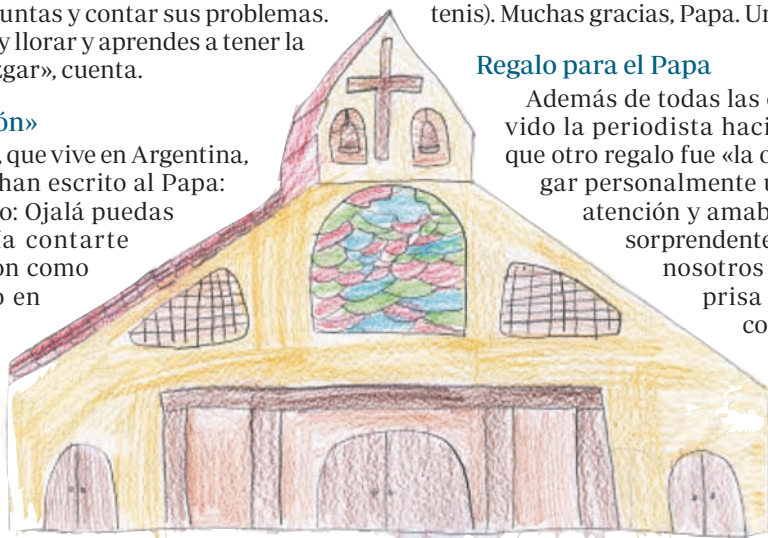 untas y contar sus problemas.
y llorar y aprendes a tener la
zgar», cuenta.
ón»
, que vive en Argentina,
han escrito al Papa:
o: Ojalá puedas
ía contarte
on como
o en
tenis). Muchas gracias, Papa. Un
Regalo para el Papa
Además de todas las
vido la periodista haci
que otro regalo fue «la o
gar personalmente u
atención y amab
sorprendente
nosotros
prisa
co